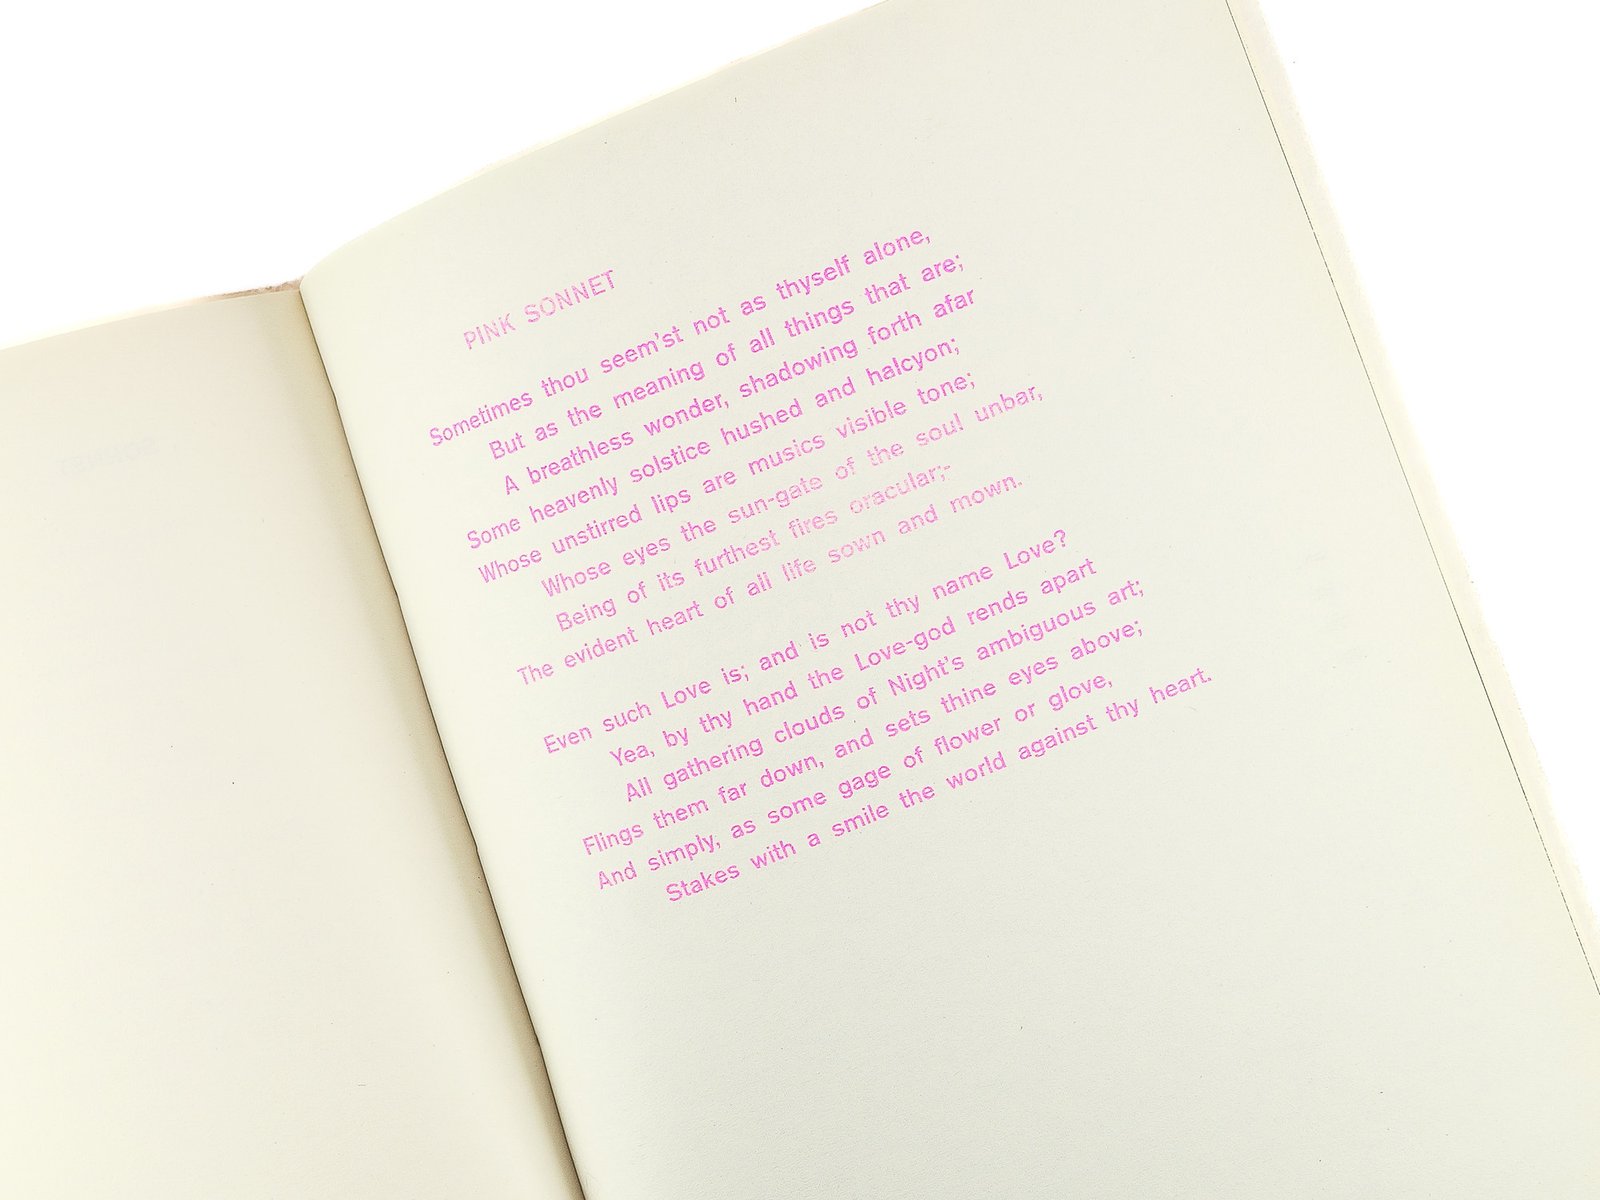 PINK SONNET
Sometimes thou seem'st not as thyself alone,
But as the meaning of all things that are;
A breathless wonder, shadowing forth afar
Some heavenly solstice hushed and halcyon;
Whose unstirred lips are musics visible tone;
Whose eyes the sun-gate of the soul unbar,
Being of its furthest fires oracular;-
The evident heart of all life sown and mown.
Even such Love is; and is not thy name Love?
Yea, by thy hand the Love-god rends apart
All gathering clouds of Night's ambiguous art;
Flings them far down, and sets thine eyes above;
And simply, as some gage of flower or glove,
Stakes with a smile the world against thy heart.